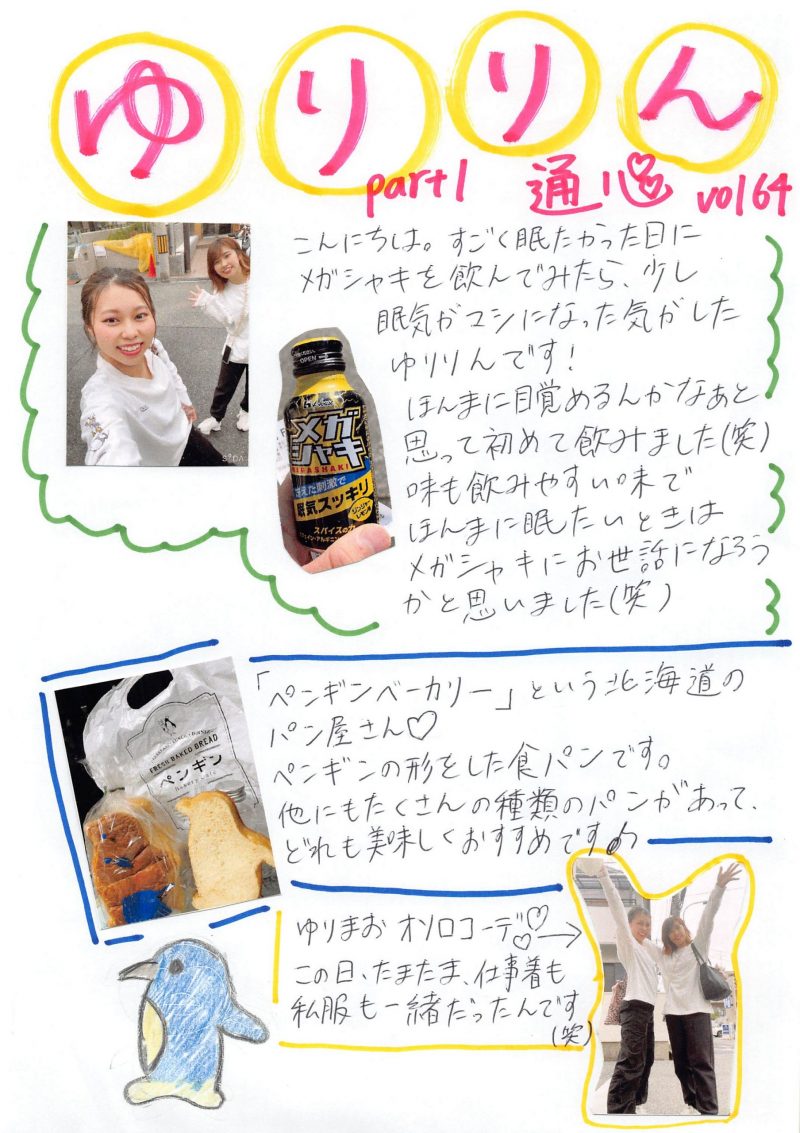 ゆりりん
part1 通心 vol64
こんにちは。すごく眠たかった日に
メガシャキを飲んでみたら、少し
眠気がマシになった気がした
ゆりりんです!
ほんまに目覚めるんかなぁと
思って初めて飲みました(笑)
味も飲みやすい味で
ほんまに眠たいときは
メガシャキにお世話になろう
かと思いました(笑)
OPEN
メガ
シャキ
MEGASHAKI
冴えた刺激で
眠気スッキリ
ジンジャー
レモン味
スパイスの
「ペンギンベーカリー」という北海道の
パン屋さん♡
ペンギンの形をした食パンです。
他にもたくさんの種類のパンがあって、
どれも美味しくおすすめです♪
FRESH BAKED BREAD
ペンギン
bakery cafe
ゆりまお オソロコーデ♡♡→
この日、たまたま、仕事着も
私服も一緒だったんです
(笑)